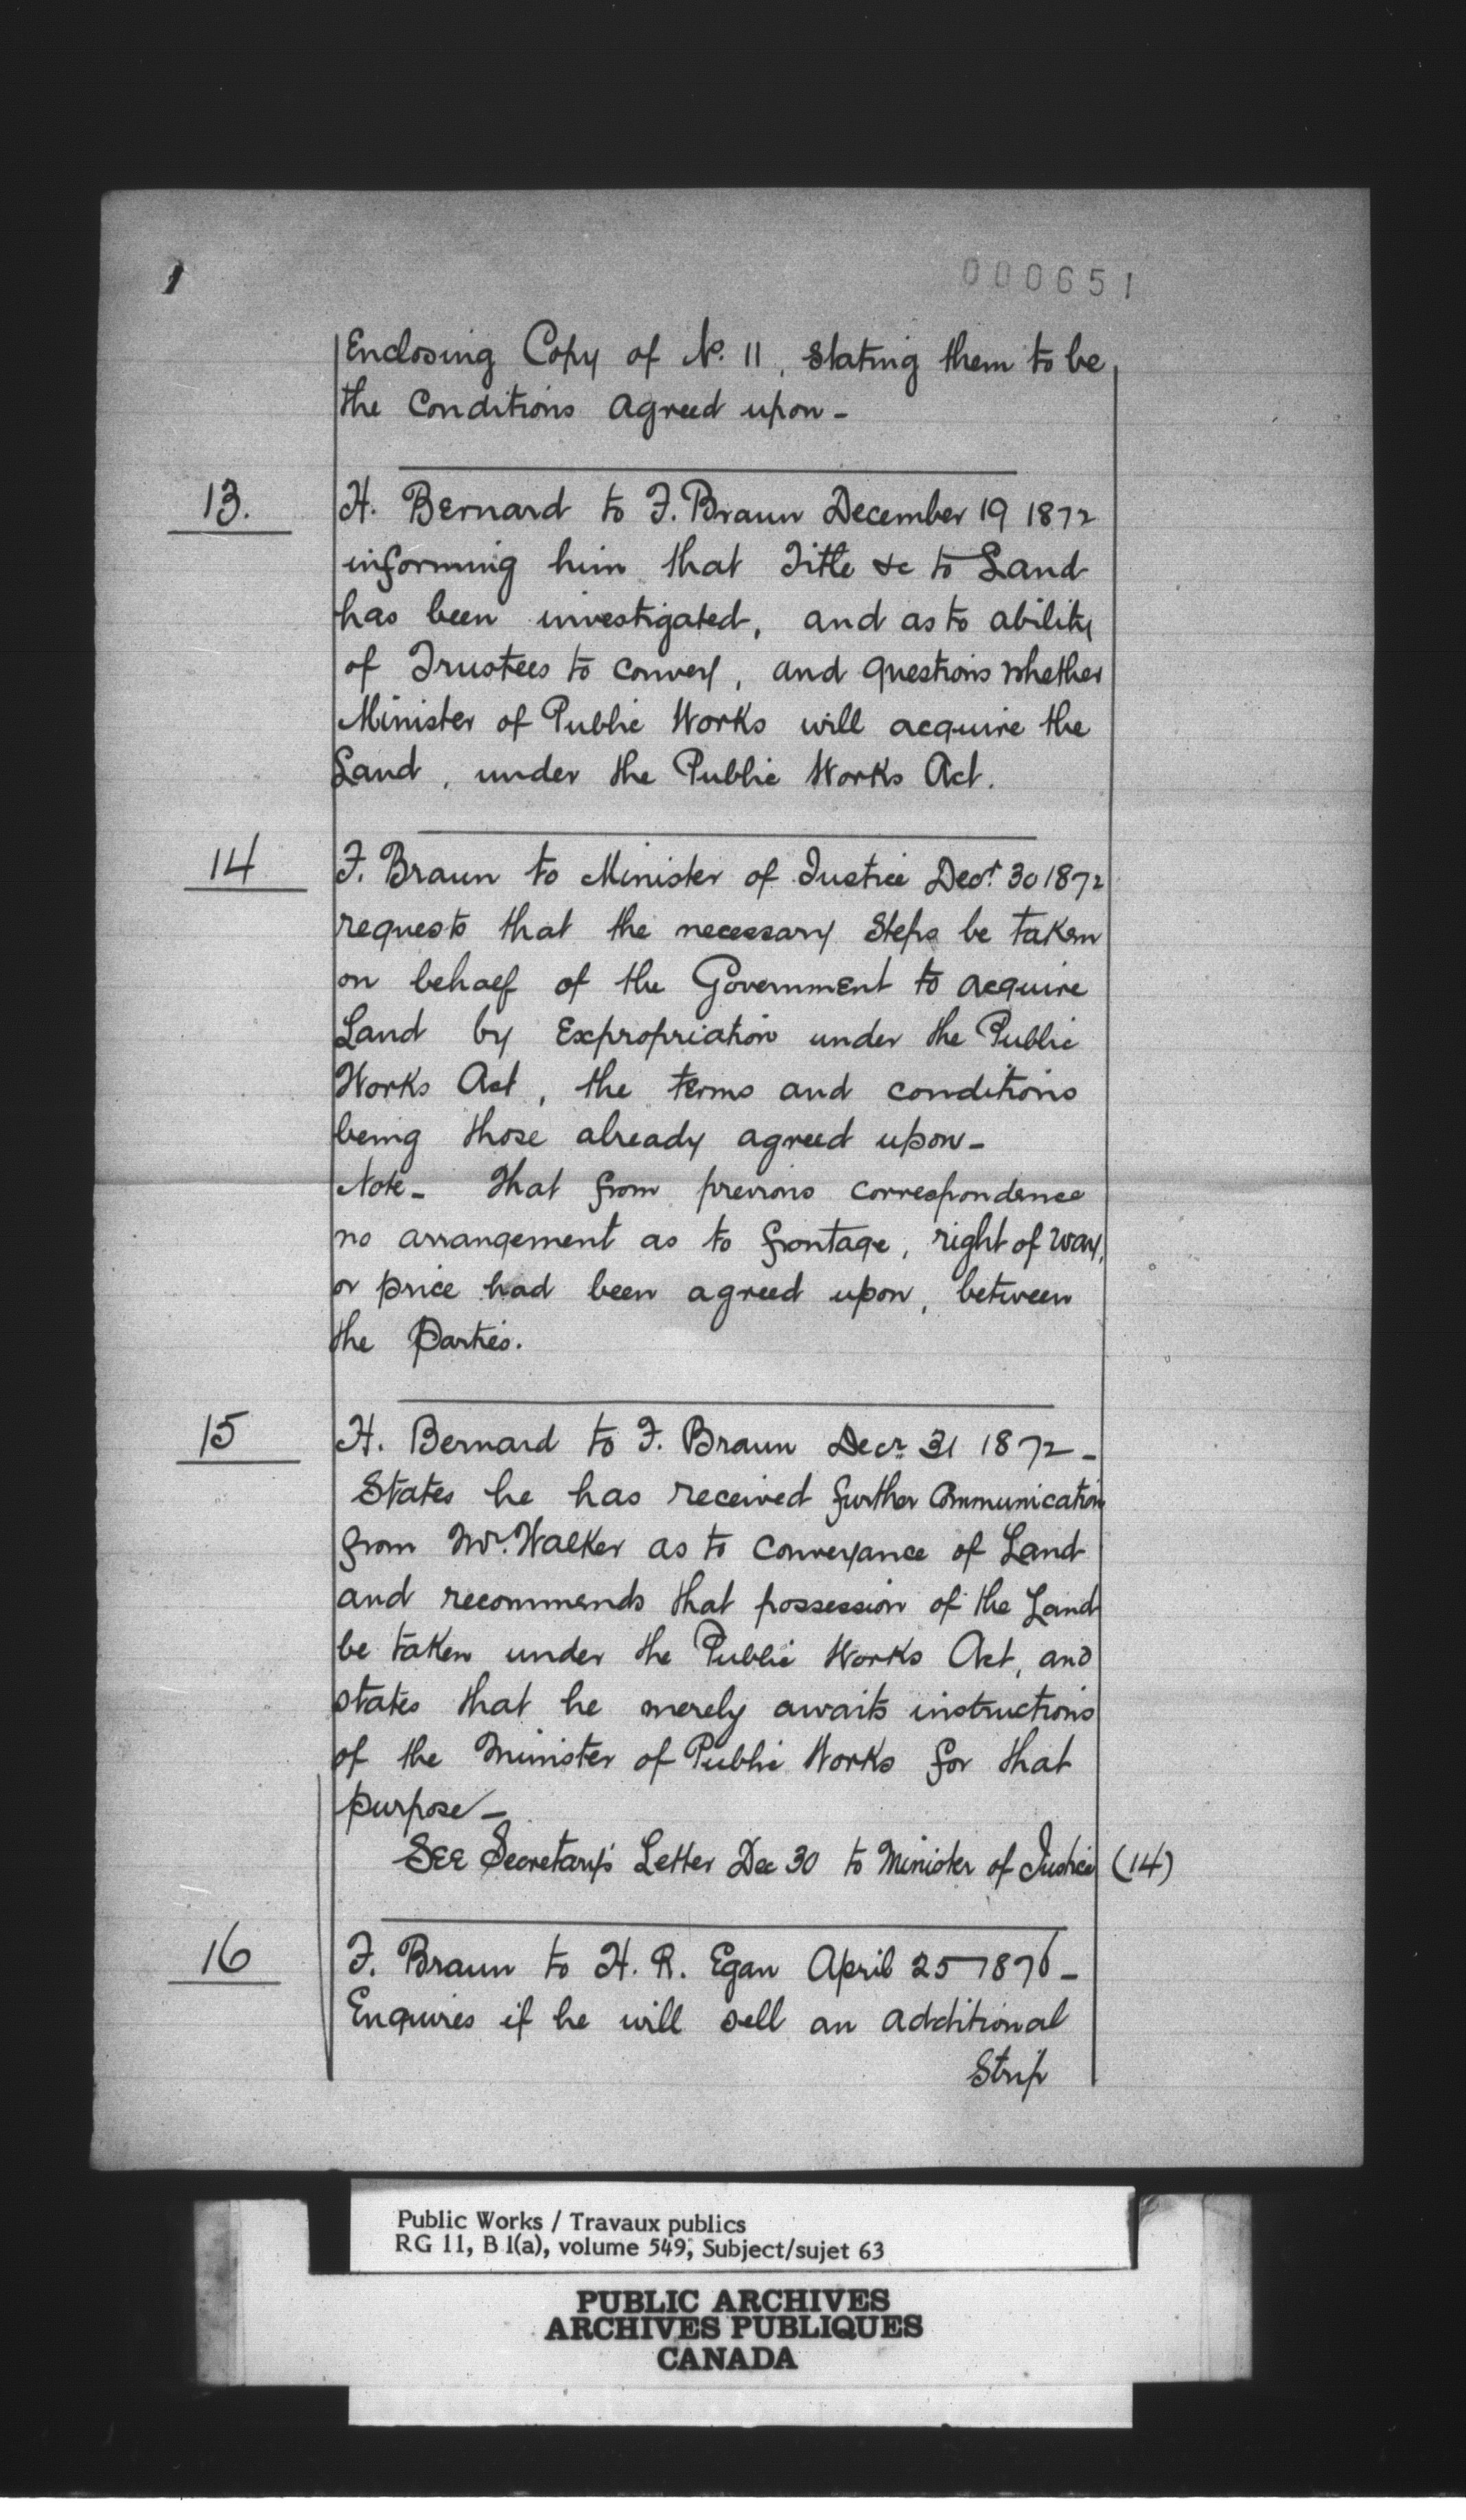 000651
Enclosing Copy of No. 11, Stating them to be
the Conditions agreed upon -
13.
H. Bernard to F. Braun December 19 1872
informing him that Title &c to Land
has been investigated, and as to ability
of Trustees to convey, and questions whether
Minister of Public Works will acquire the
Land, under the Public Works Act.
14
F. Braun to Minister of Justice Decr 30 1872
requests that the necessary Steps be taken
on behalf of the Government to acquire
Land by Expropriation under the Public
Works Act, the terms and conditions
being those already agreed upon -
Note - that from previous correspondence
no arrangement as to frontage, right of way,
or price had been agreed upon, between
the Parties.
15
H. Bernard to F. Braun Decr 31 1872 -
States he has received further Communication
from Mr. Walker as to Conveyance of Land
and recommends that possession of the Land
be taken under the Public Works Act, and
states that he merely awaits instructions
of the Minister of Public Works for that
purpose -
SEE Secretary's Letter Dec 30 to Minister of Justice (14)
16
F. Braun to H. R. Egan April 25 1876 -
Enquires if he will sell an additional
Strip
Public Works / Travaux publics
RG 11, B 1(a), volume 549, Subject/sujet 63
PUBLIC ARCHIVES
ARCHIVES PUBLIQUES
CANADA